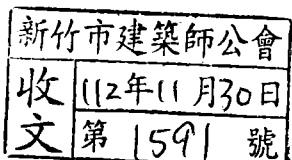 新竹市建築師公會
收文
112年11月30日
第 1591 號